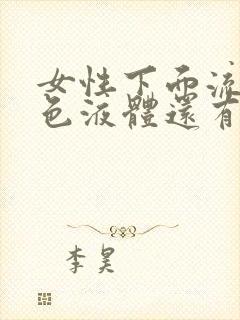 女性下面流
色液體還有
李昊